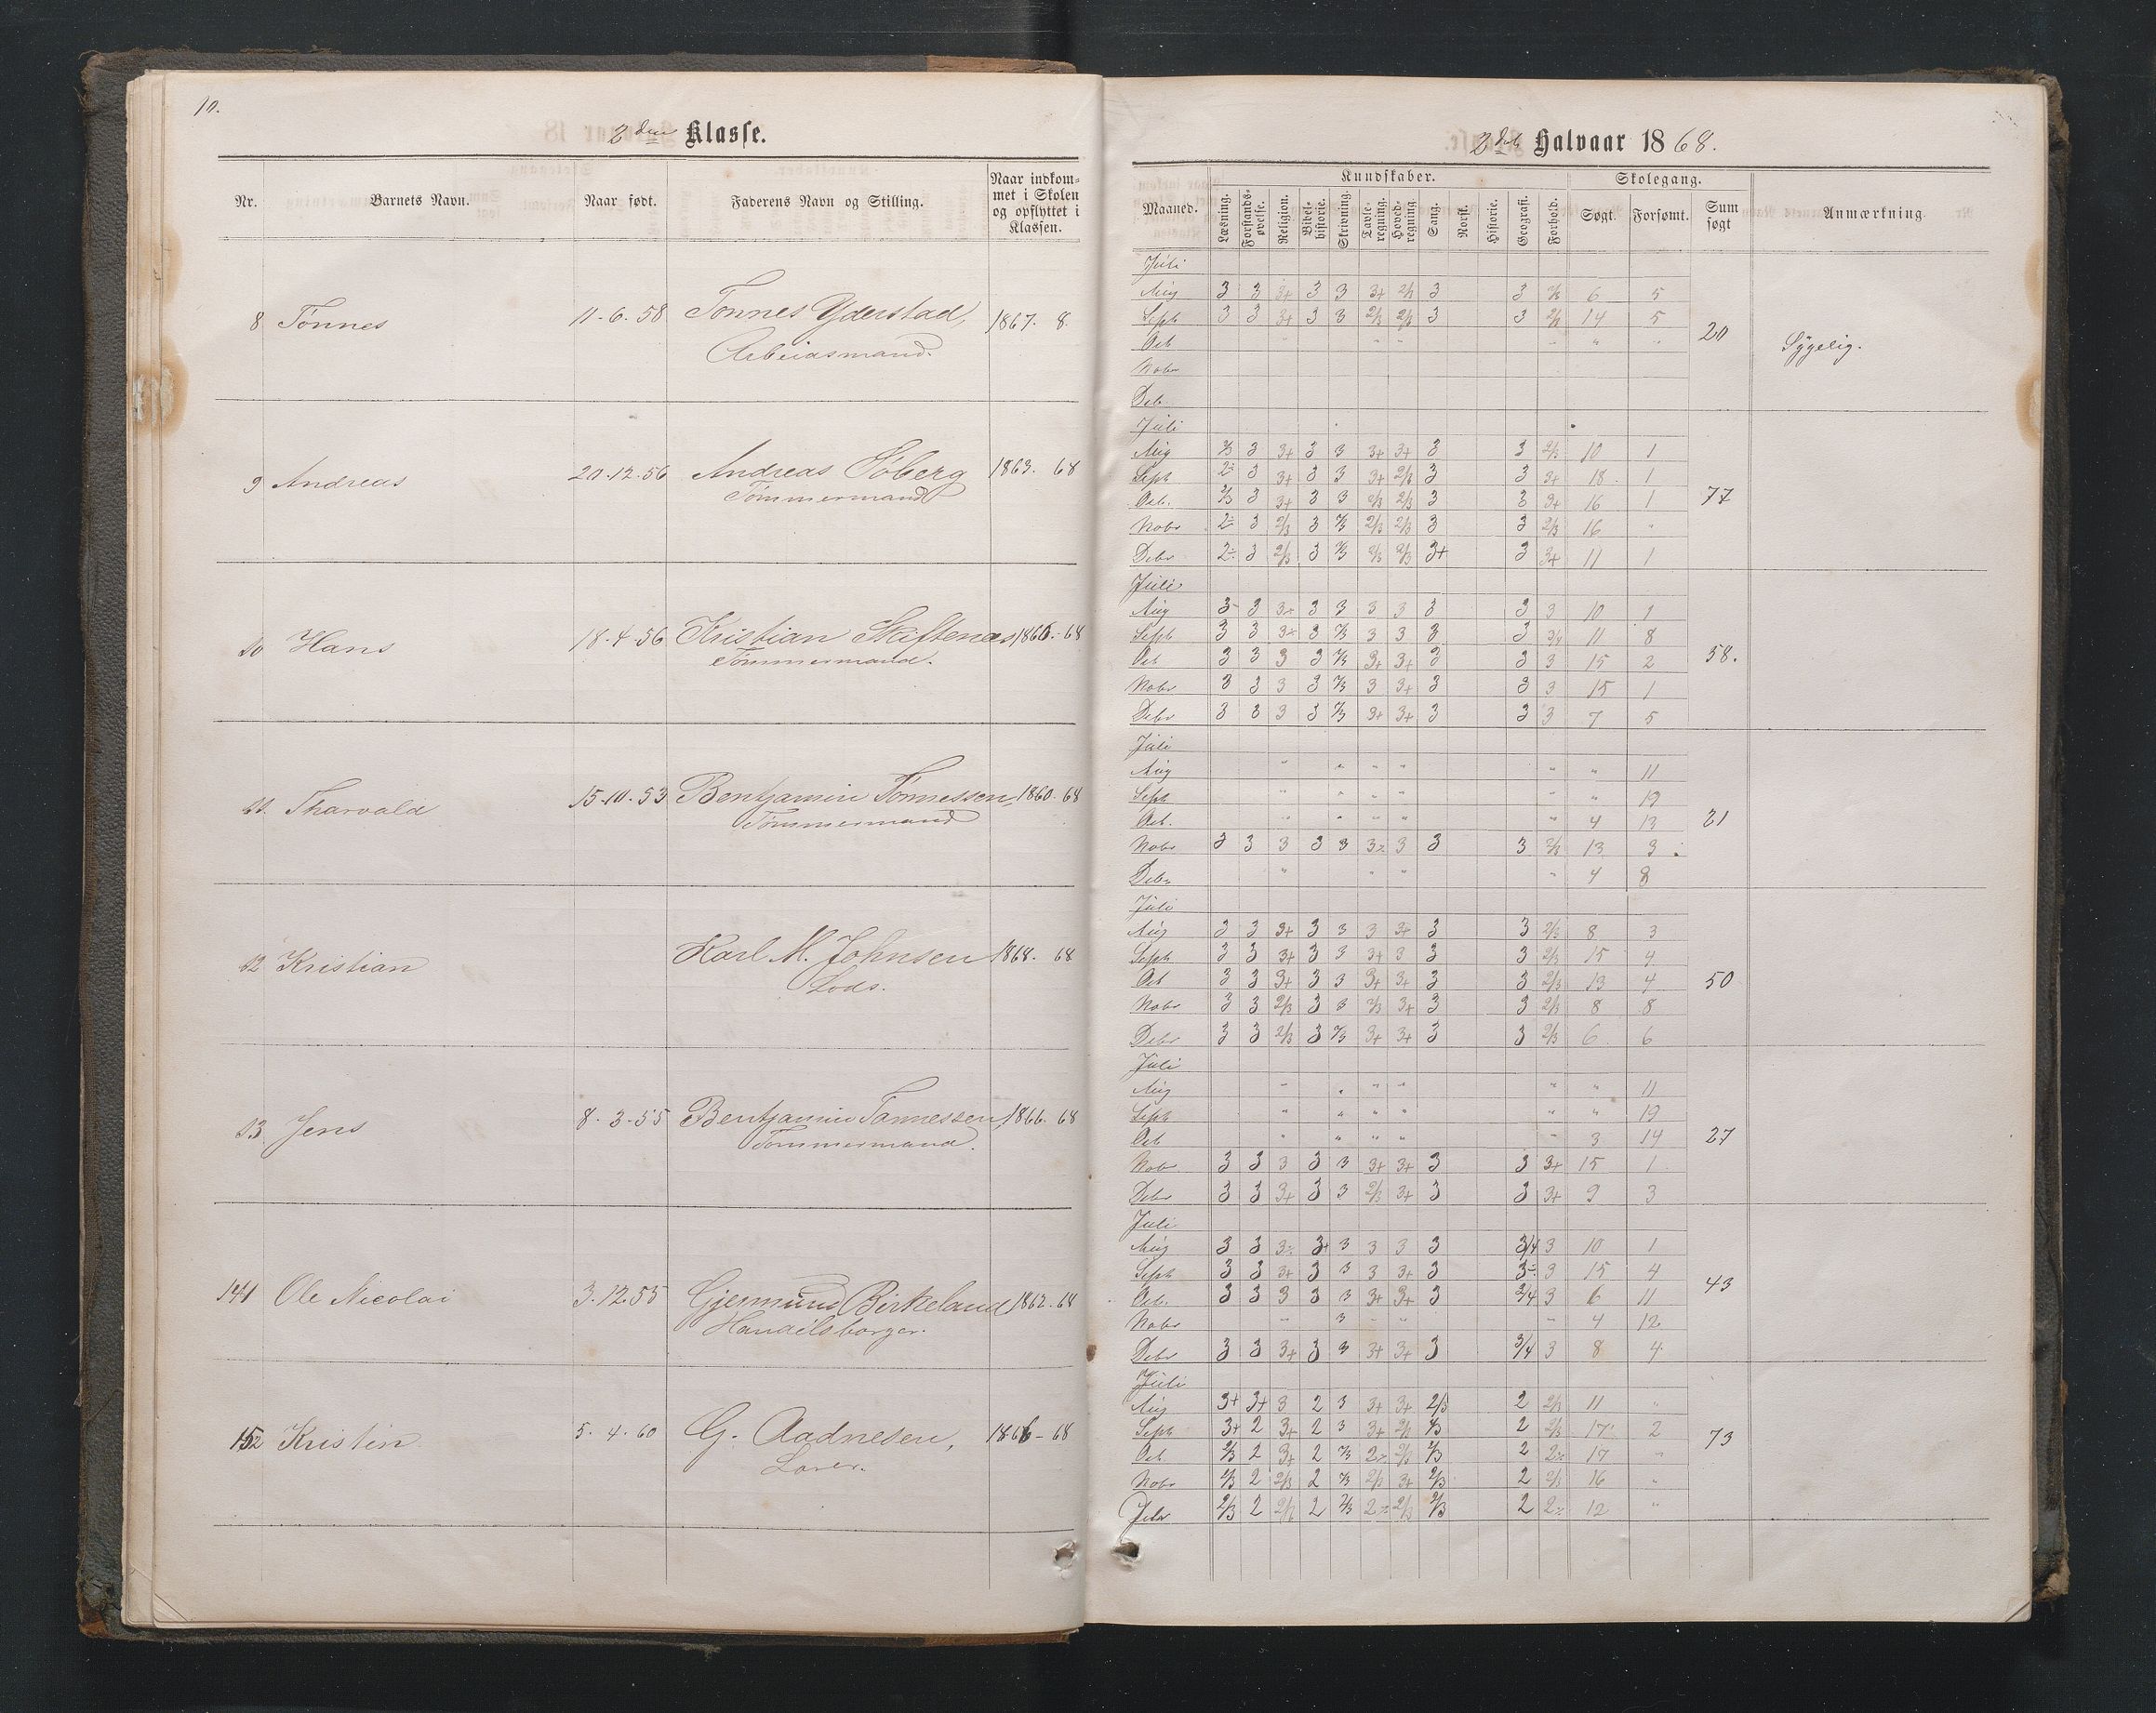 10.
2den Klasse.
Nr. Barnets Navn. Naar født. Faderens Navn og Stilling. Naar indkom-
met i Skolen
og opflyttet i
Klassen.
8 Tønnes 11-6-58 Tønnes Yderstad, 1867. 8.
Arbeidsmand.
9 Andreas 20-12-56 Andreas Søberg 1863. 68
Tømmermand
10 Hans 18-4-56 Kristian Skiftenæs 1866.-68
Tømmermand.
11. Tharvald 15-10-53 Bentjamin Tønnessen, 1860. 68
Tømmermand
12 Kristian Karl M. Johnsen 1868. 68
Lods.
13 Jens 8-3-55 Bentjamin Tønnessen, 1866. 68
Tømmermand.
14 Ole Nicolai 3-12-55 Gjermund Birkeland 1862. 68
Handelsborger.
15 Kristin 5-4-60 G. Aadnesen, 1866-68
Lærer.
2det Halvaar 1868.
Kundskaber. Skolegang.
Maaned. Læsning. Forstands-
øvelse. Religion. Bibel-
historie. Skrivning. Tavle-
regning. Hoved-
regning. Sang. Norsk. Historie. Geografi. Forhold. Søgt. Forsømt. Sum
søgt Anmærkning
Juli
Aug 3 3 3+ 3 3 3+ 2/3 3 3 2/3 6 5
Sept 3 3 3+ 3 3 2/3 2/3 3 3 2/3 14 5
Oct " " " " " "
20 Sygelig.
Nobr
Deb.
Juli
Aug 2/3 3 3+ 3 3 3+ 3+ 3 3 2/3 10 1
Sept 2÷ 3 3+ 3 3 3+ 2/3 3 3 3+ 18 1
Oct. 2/3 3 3+ 3 3 2/3 2/3 3 3 3+ 16 1
77
Nobr 2÷ 3 2/3 3 2/3 2/3 2/3 3 3 2/3 16 "
Debr 2÷ 3 2/3 3 2/3 2/3 2/3 3+ 3 3+ 11 1
Juli
Aug 3- 3 3÷ 3 3 3 3 3 3 3 10 1
Sept 3 3 3÷ 3 2/3 3 3 3 3 3/4 11 8
Oct 3 3 3 3 2/3 3+ 3+ 3 3 3 15 2
58.
Nobr 3 3 3 3 2/3 3 3+ 3 3 3 15 1
Debr 3 3 3 3 2/3 3+ 3+ 3 3 3 7 5
Juli
Aug " " " " " " 11
Sept " " " " " " 19
Oct. " " " " " 4 13
21
Nobr 3 3 3 3 3 3÷ 3 3 3 2/3 13 3
Debr " " " " 4 8
Juli
Aug 3 3 3+ 3 3 3 3+ 3 3 2/3 8 3
Sept 3 3 3+ 3 3 3+ 3 3 3 2/3 15 4
Oct 3 3 3+ 3 3 3+ 3+ 3 3 2/3 13 4
50
Nobr 3 3 2/3 3 3 2/3 3+ 3 3 2/3 8 8
Debr 3 3 2/3 3 2/3 3+ 3+ 3 3 2/3 6 6
Juli
Aug " " " " " " 11
Sept " " " " " " 19
Oct " " " " " 3 14
27
Nobr 3 3 3 3 3 3+ 3+ 3 3 3+ 15 1
Debr 3 3 3+ 3 3 2/3 3+ 3 3 3+ 9 3
Juli
Aug 3 3 3÷ 3+ 3 3 3 3 3/4 3 10 1
Sept 3 3 3+ 3 3 3 3+ 3 3÷ 3 15 4
Oct. 3 3 3 3 3 3+ 3+ 3 3/4 3 6 11
43
Nobr " 3 " " " 4 12
Debr 3 3 3+ 3 3 3+ 3+ 3 3/4 3 8 4
Juli
Aug 3+ 3+ 3 2 3 3+ 3+ 2/3 2 2/3 11 "
Sept 3+ 2 3+ 2 3 3+ 2/3 2/3 2 2/3 17 2
Oct 2/3 2 3+ 2 2/3 2÷ 2/3 2/3 2 2÷ 17 "
73
Nobr 2/3 2 2/3 2 2/3 2/3 3+ 2/3 2 2/3 16 "
Debr 2/3 2 2/3 2 2/3 2÷ 2/3 2/3 2 2÷ 12 "